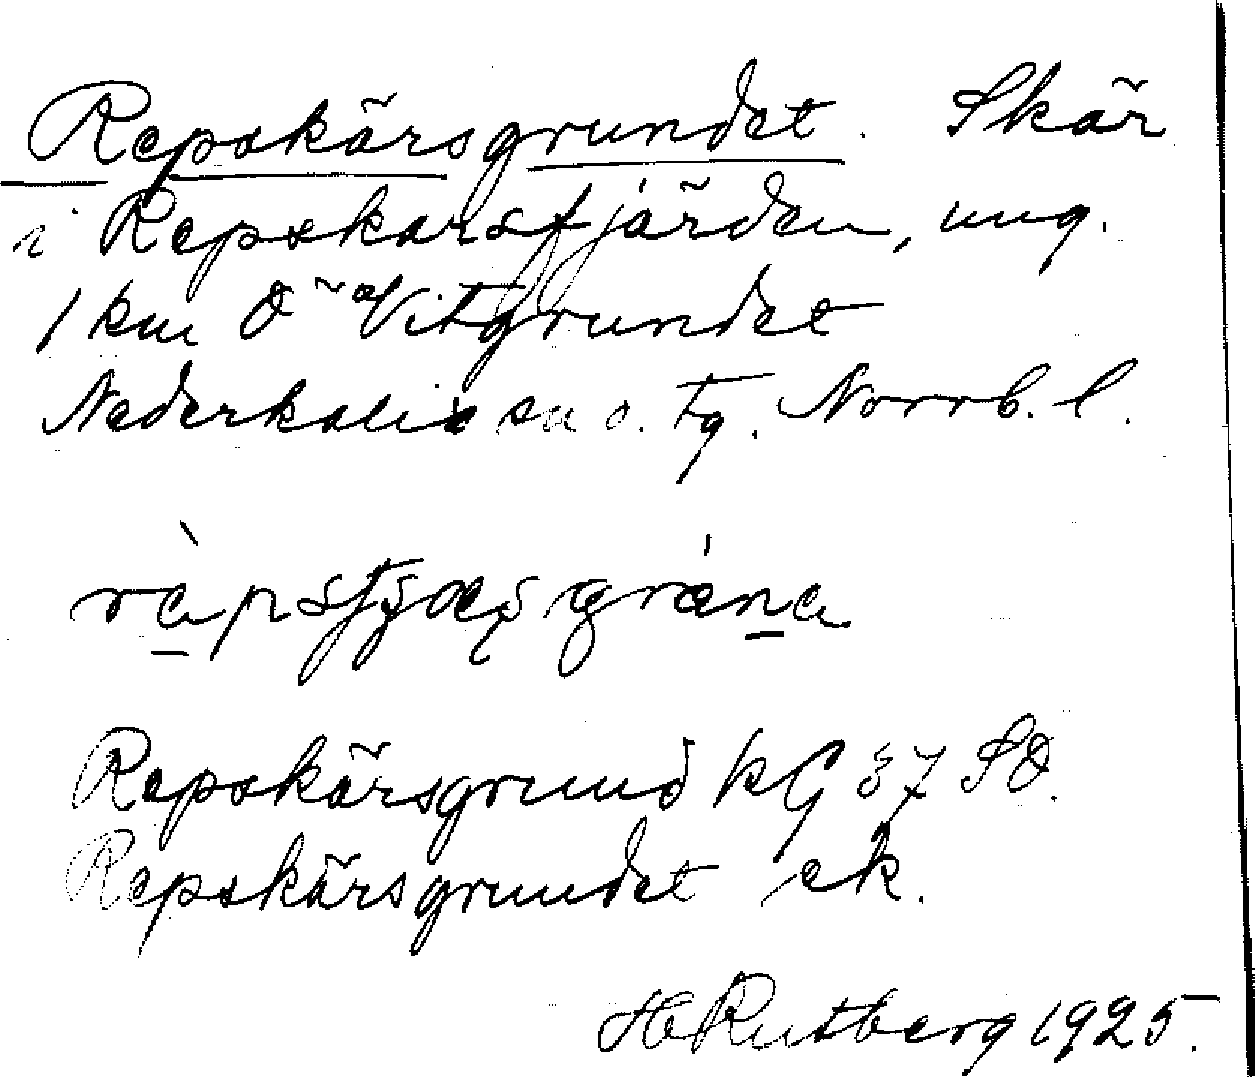 Repskärsgrundet. Skär
i Repskärsfjärden, ung.
1 km Ö Vitgrundet
Nederkalix sn o. tg. Norrb. l.
Repskärsgrund kG 37 SO.
Repskärsgrundet ek.
H Rutberg 1925.